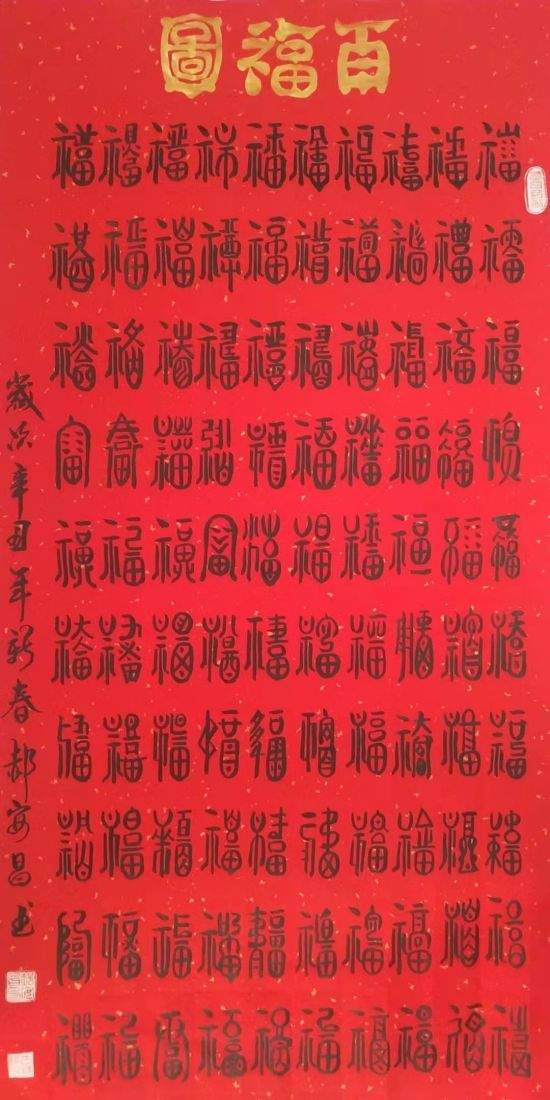 百福圖
福福福福福福福福福福
福福福福福福福福福福
福福福福福福福福福福
福福福福福福福福福福
福福福福福福福福福福
福福福福福福福福福福
福福福福福福福福福福
福福福福福福福福福福
福福福福福福福福福福
福福福福福福福福福福
歲次辛丑年新春郝安昌书